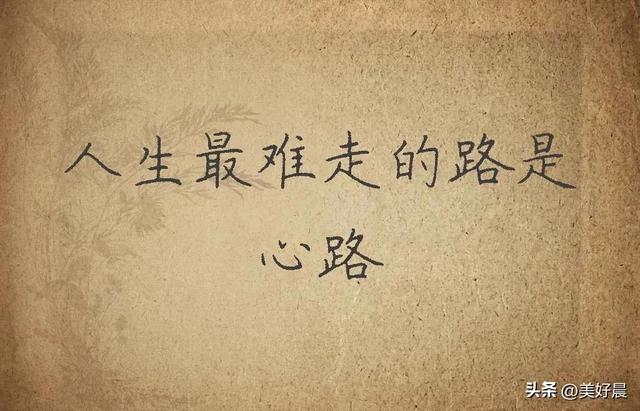 人生最难走的路是
心路
头条@美好晨